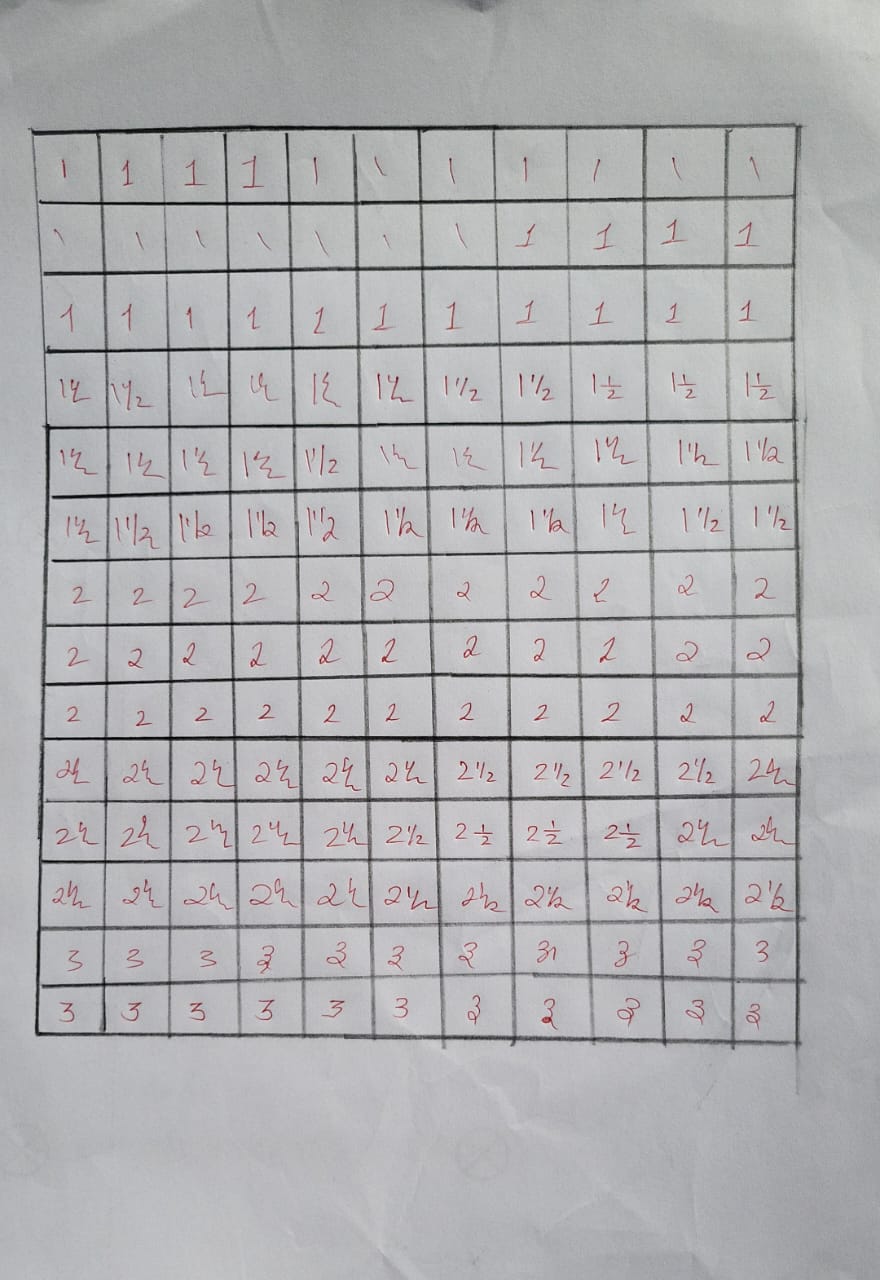 1 1 1 1 1 1 1 1 1 1 1
1 1 1 1 1 1 1 1 1 1 1
1 1 1 1 1 1 1 1 1 1 1
1½ 1½ 1½ 1½ 1½ 1½ 1½ 1½ 1½ 1½ 1½
1½ 1½ 1½ 1½ 1½ 1½ 1½ 1½ 1½ 1½ 1½
1½ 1½ 1½ 1½ 1½ 1½ 1½ 1½ 1½ 1½ 1½
2 2 2 2 2 2 2 2 2 2 2
2 2 2 2 2 2 2 2 2 2 2
2 2 2 2 2 2 2 2 2 2 2
2½ 2½ 2½ 2½ 2½ 2½ 2½ 2½ 2½ 2½ 2½
2½ 2½ 2½ 2½ 2½ 2½ 2½ 2½ 2½ 2½ 2½
2½ 2½ 2½ 2½ 2½ 2½ 2½ 2½ 2½ 2½ 2½
3 3 3 3 3 3 3 3 3 3 3
3 3 3 3 3 3 3 3 3 3 3